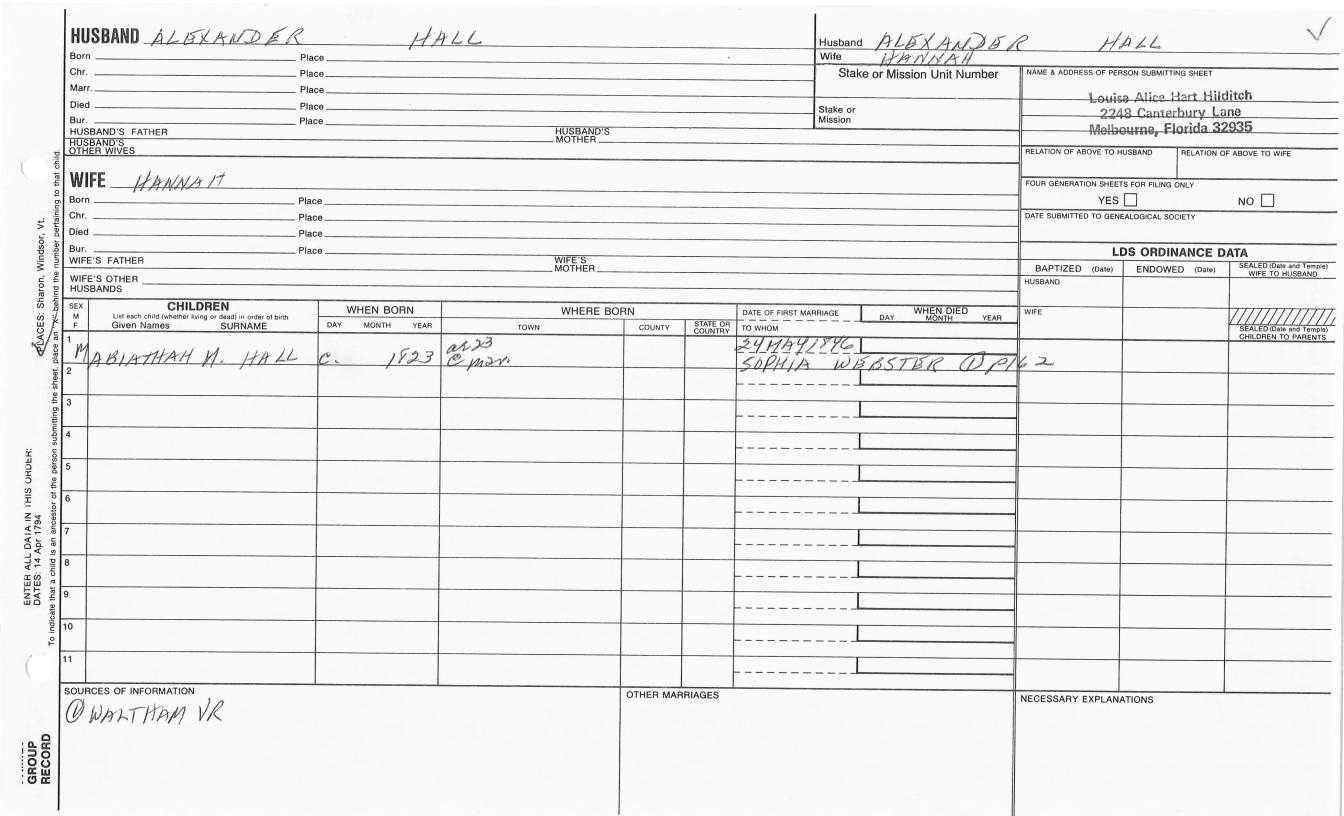 HUSBAND ALEXANDER HALL
Born Place
Chr. Place
Marr. Place
Died Place
Bur. Place
HUSBAND'S FATHER HUSBAND'S MOTHER
HUSBAND'S OTHER WIVES
Husband ALEXANDER HALL
Wife HANNAH
Stake or Mission Unit Number
Stake or Mission
NAME & ADDRESS OF PERSON SUBMITTING SHEET
Louise Alice Hart Hilditch
2248 Canterbury Lane
Melbourne, Florida 32935
RELATION OF ABOVE TO HUSBAND RELATION OF ABOVE TO WIFE
FOUR GENERATION SHEETS FOR FILING ONLY
YES NO
DATE SUBMITTED TO GENEALOGICAL SOCIETY
WIFE HANNAH
Born Place
Chr. Place
Died Place
Bur. Place
WIFE'S FATHER WIFE'S MOTHER
WIFE'S OTHER HUSBANDS
LDS ORDINANCE DATA
BAPTIZED (Date) ENDOWED (Date) SEALED (Date and Temple) WIFE TO HUSBAND
HUSBAND
WIFE
SEALED (Date and Temple) CHILDREN TO PARENTS
SEX M F
CHILDREN
List each child (whether living or dead) in order of birth
Given Names SURNAME
WHEN BORN
DAY MONTH YEAR
WHERE BORN
TOWN COUNTY STATE OR COUNTRY
DATE OF FIRST MARRIAGE
TO WHOM
WHEN DIED
DAY MONTH YEAR
1 M ABIATHAH N. HALL c. 1823 ae 23 @ mar. 24 MAY 1846
SOPHIA WEBSTER ① P162
2
3
4
5
6
7
8
9
10
11
SOURCES OF INFORMATION
① WALTHAM VR
OTHER MARRIAGES
NECESSARY EXPLANATIONS
PLACES: Sharon, Windsor, Vt.
ENTER ALL DATA IN THIS ORDER:
DATES: 14 Apr 1794
To indicate that a child is an ancestor of the person submitting the sheet, place an "X" behind the number pertaining to that child.
GROUP
RECORD